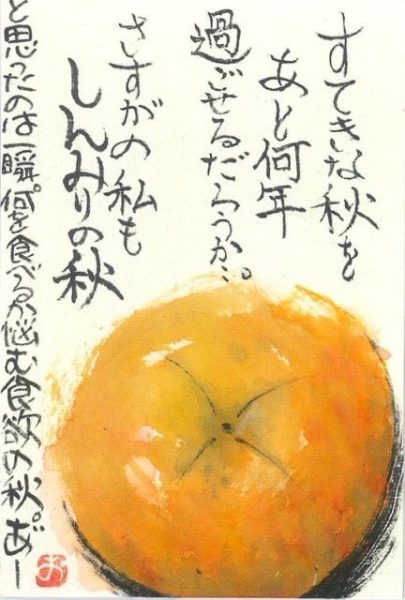 すてきな秋を
あと何年
過ごせるだろうか…。
さすがの私も
しんみりの秋
と思ったのは一瞬。何を食べるか悩む食欲の秋。あー